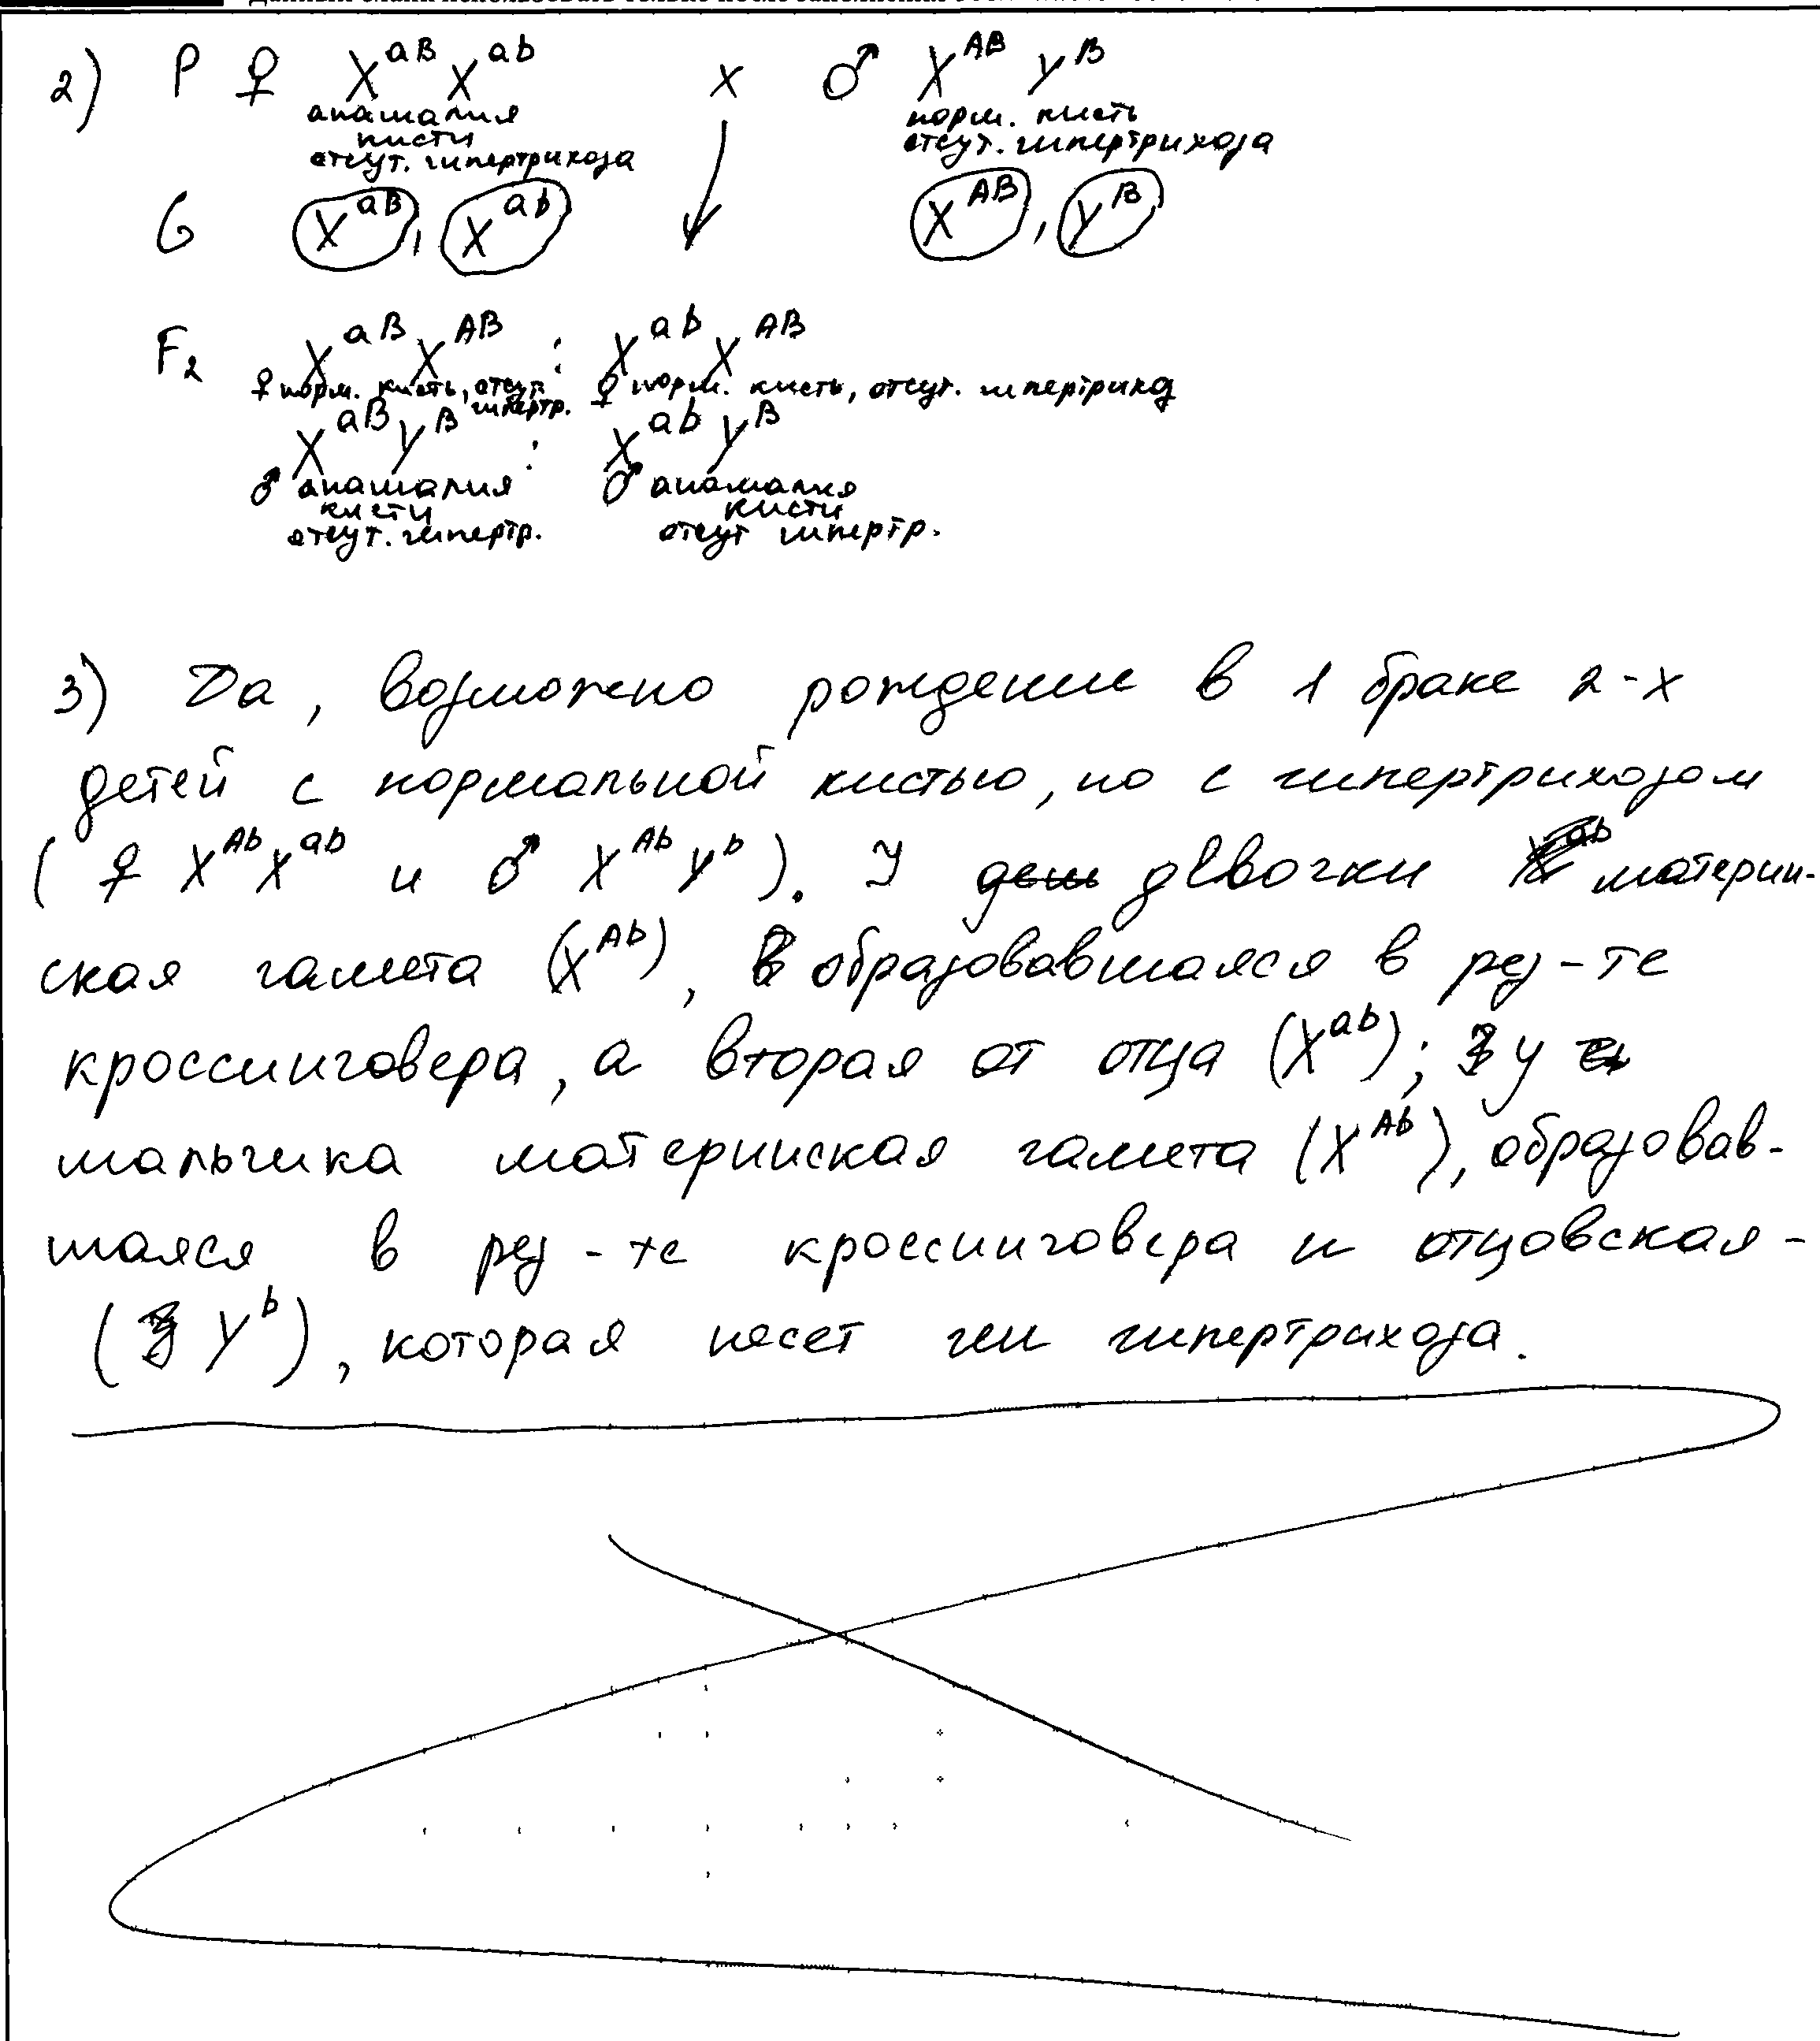 2) P ♀ X^aB X^ab x ♂ X^AB Y^B
анамалия норм. кисть
кисти отсут. гипертрихоза
отсут. гипертрихоза
G X^aB, X^ab X^AB, Y^B
F2 X^aB X^AB : X^ab X^AB
♀ норм. кисть, отсут. гипертр. ♀ норм. кисть, отсут. гипертрихоз
X^aB Y^B : X^ab Y^B
♂ анамалия ♂ анамалия
кисти кисти
отсут. гипертр. отсут гипертр.
3) Да, возможно рождение в 1 браке 2-х
детей с нормальной кистью, но с гипертрихозом
( ♀ X^Ab X^ab и ♂ X^Ab Y^b ). У девочки материн-
ская гамета (X^Ab), образовавшаяся в рез-те
кроссинговера, а вторая от отца (X^ab); у
мальчика материнская гамета (X^Ab), образовав-
шаяся в рез-те кроссинговера и отцовская -
( Y^b ), которая несет ген гипертрихоза.